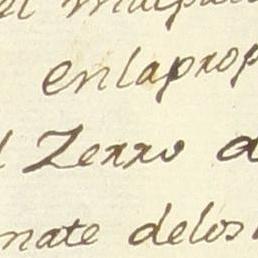 enlaprop
l Zerro a
nate delos